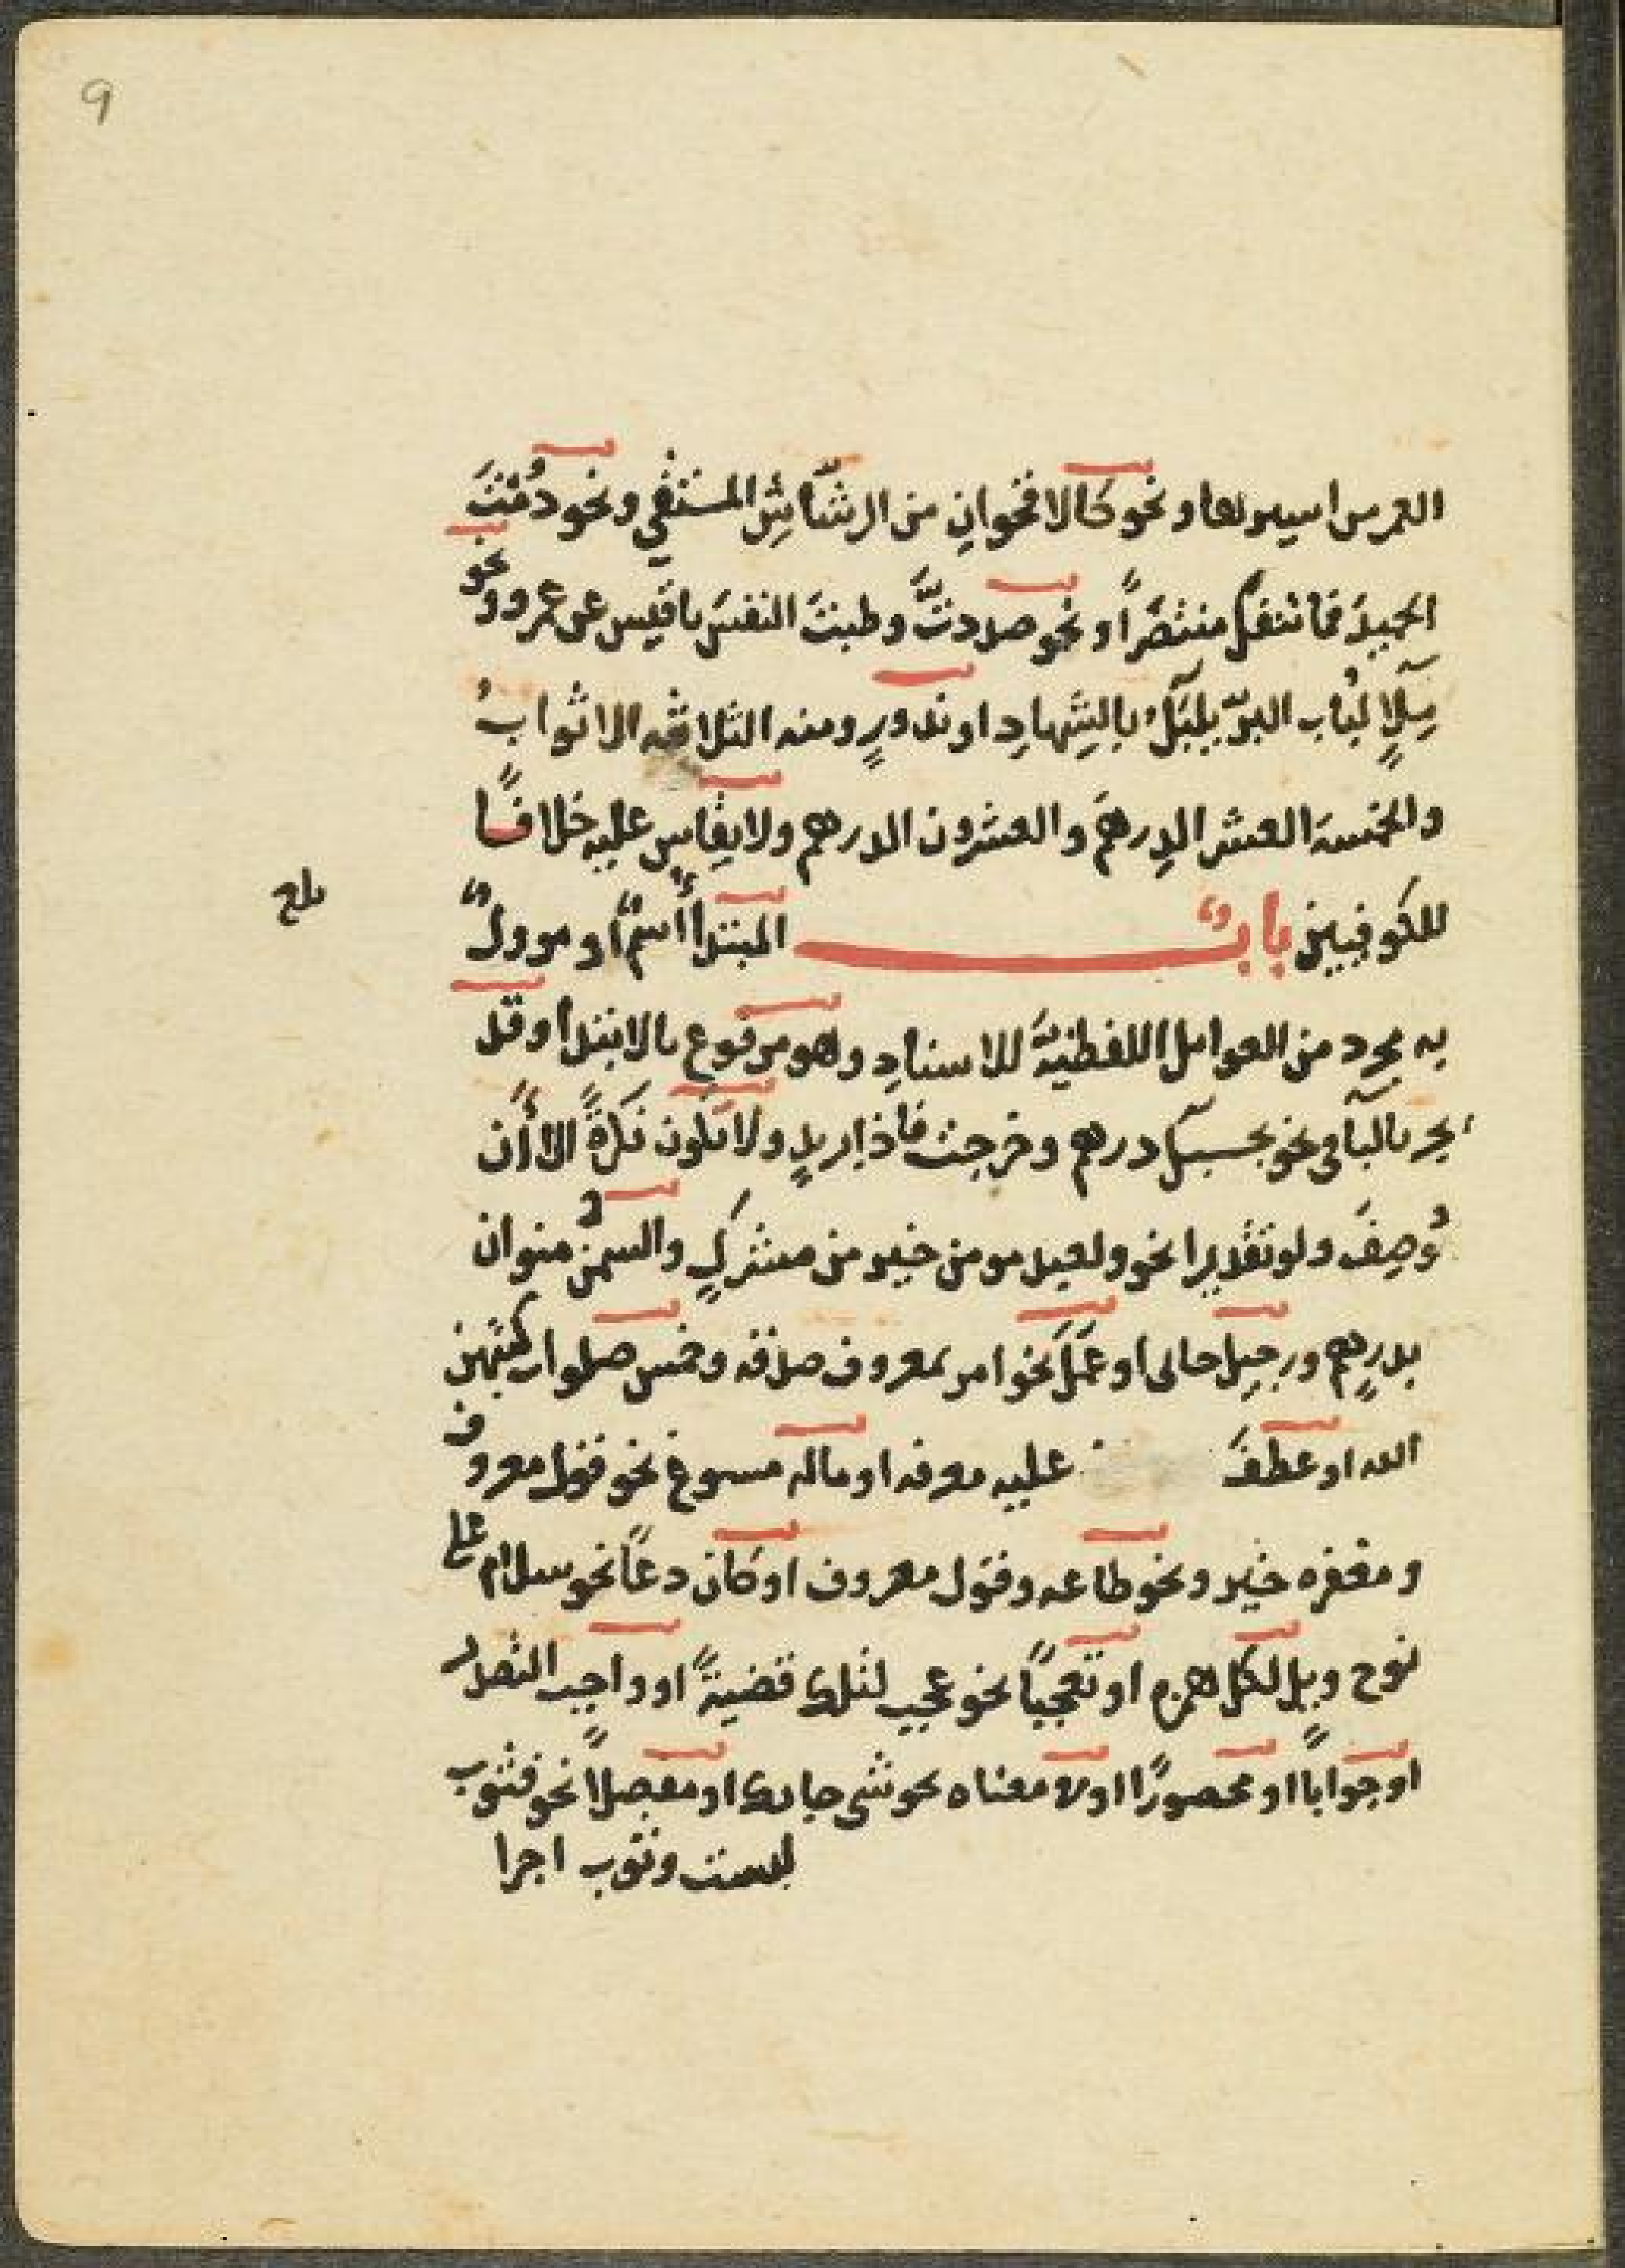 9
العمرس اسيرها ونحو كالاقحوانِ من الرشّاشِ المستقي ونحو دُمْتَ
الحميدَ فما تنفكّ منتصرًا ونحو صددتَّ وطبتَ النفسَ ياقيس عن عمرو ونحو
مِلاءٍ لُباب البرّ يلبكُ بالشِهادِ او ندورٍ ومنه الثلاثه الاثوابُ
والخمسه العشر الدرهم والعشرون الدرهم ولا يقاس عليه خلافًا
للكوفيين بابٌ المبتدأ اسمٌ او موولٌ
بلغ
به مجرد من العوامل اللفظيةِ للاسنادِ وهو مرفوع بالابتدا وقد
يجر بالبا في نحو بحسبك درهم وخرجت فاذا بزيدٍ ولا تكون نكرةً الا ان
وُصِفَ ولو تقديرا نحو ولعبد مومن خير من مشركٍ والسمن منوان
بدرهمٍ ورجيل حالى او عَمَلَ نحو امر بمعروف صدقه وخمس صلوات كتبهن
الله او عطفَ عليه معرفه او ماله مسوغ نحو قول معروف
ومغفره خير ونحو طاعه وقول معروف او كان دعاً نحو سلام على
نوح ويل لكل همزه او تعجبًا نحو عجب لتلك قضيةً او واجب التصدر
او جوابًا او محصورًا او في معناه نحو شي جا بك او مفصلاً نحو فثوب
لبست وثوب اجرا